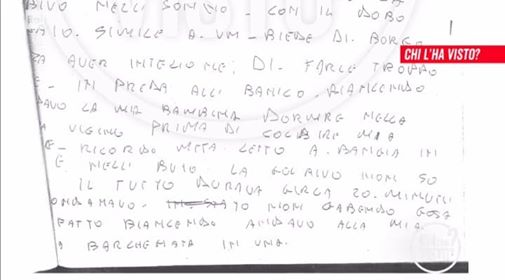 BIVO NELLI SONNO - CON IL DOBO
SIMILE A. UM - BIEDE DI. BORGO
CHI L'HA VISTO?
ZA AVER INTEZIONE; DI. FARLE TROPPO
E - IM PREDA ALLI BANICO. BIANCENDO
DAVO LA MIA BAMBINA DORMIRE NELLA
VICINO PRIMA DI COLBIRE MIA
E - RICORDO META LETTO A. BANGIA IN
E NELLI BUIO. LA COLBIVO NON SO
IL TUTTO DURAVA CIRCA 20. MINUTI
NON SABENDO COSA
FATTO BIANCENDO ANDAVO ALLA MIA
BARCHEMATA IN UNA.